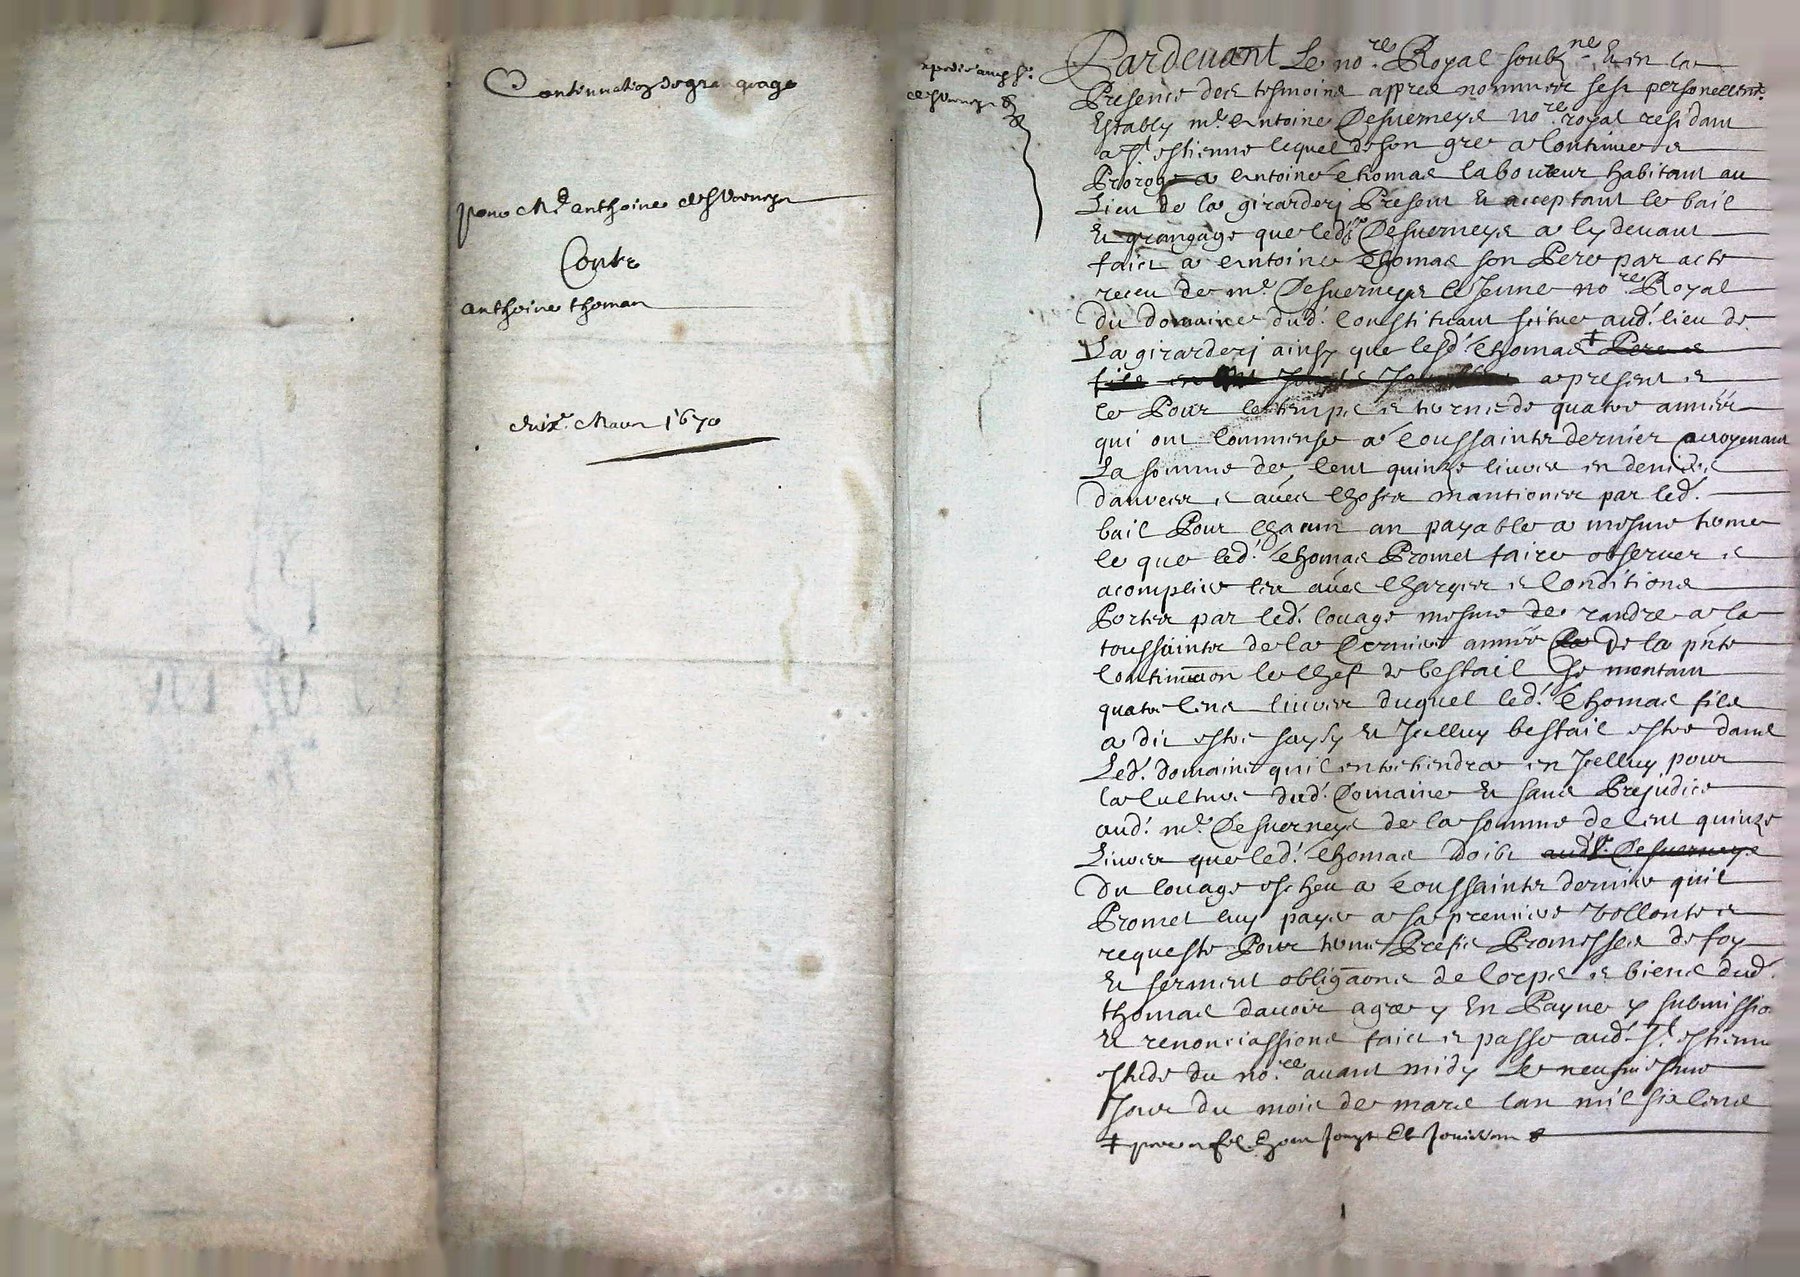 Continuation de grangage
pour Me anthoine desverneys
Contre
anthoine thomas
du ix.e Mars 1670
expedie aud sr.
desverneys
Pardevant Le no.re Royal soubz.ne & en la
Presence des tesmoins appres nommes sest personellem.t
Estably m.e Antoine Desverneys no.re royal residant
a st estienne lequel de son gre a continue &
Proroge a Antoine thomas laboureur habitant au
Lieu de la girarderj Present & acceptant le bail
& grangage que led.t Desverneys a cy devant
faict a Antoine thomas son Pere par acte
receu de m.e Desverneys le Jeune no.re Royal
du domaine dud. Constituant scitue aud. lieu de
La girarderj ainsy que lesd. thomas + Pere &
fils en ont Jouy & Jouissent a present &
ce Pour le temps & terme de quatre annees
qui ont commense a toussaintz dernier moyenant
La somme de cent quinze livres en deniers
dauvers & autres choses mantiones par led.
bail Pour chacun an payable a mesme terme
ce que led. thomas Promet faire observer &
acomplire les autres charges & Conditions
Portes par led. louage mesme de randre a la
toussaintz de la Derniere année de la pnte
Continuaon le chef de bestail se montant
quatre cens livres duquel led. thomas fils
a dit estre saysy & Jcelluy bestail estre dans
Led. domaine quil entretiendra en Jcelluy pour
la Culture dud. Domaine & sans Prejudice
aud. m.e Desverneys de la somme de Cent quinze
Livres que led. thomas doibt aud.t Desverneys
du louage escheu a toussaintz dernier quil
Promet luy payer a sa premiere vollonte &
requeste Pour terme Prefix Promesses de foy
& serment obligaons de Corps & biens dud.
thomas davoir agre y En Payne y submission
& renonciassions faict & passe aud. st. estienne
estude du no.re avant midy Le neufviesme
Jour du mois de mars lan mil six cens
+ pere & fils en ont Jouy & Jouissent